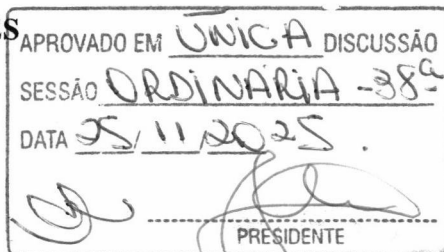 S
APROVADO EM ÚNICA DISCUSSÃO
SESSÃO ORDINÁRIA - 38ª
DATA 25/11/2025.
PRESIDENTE